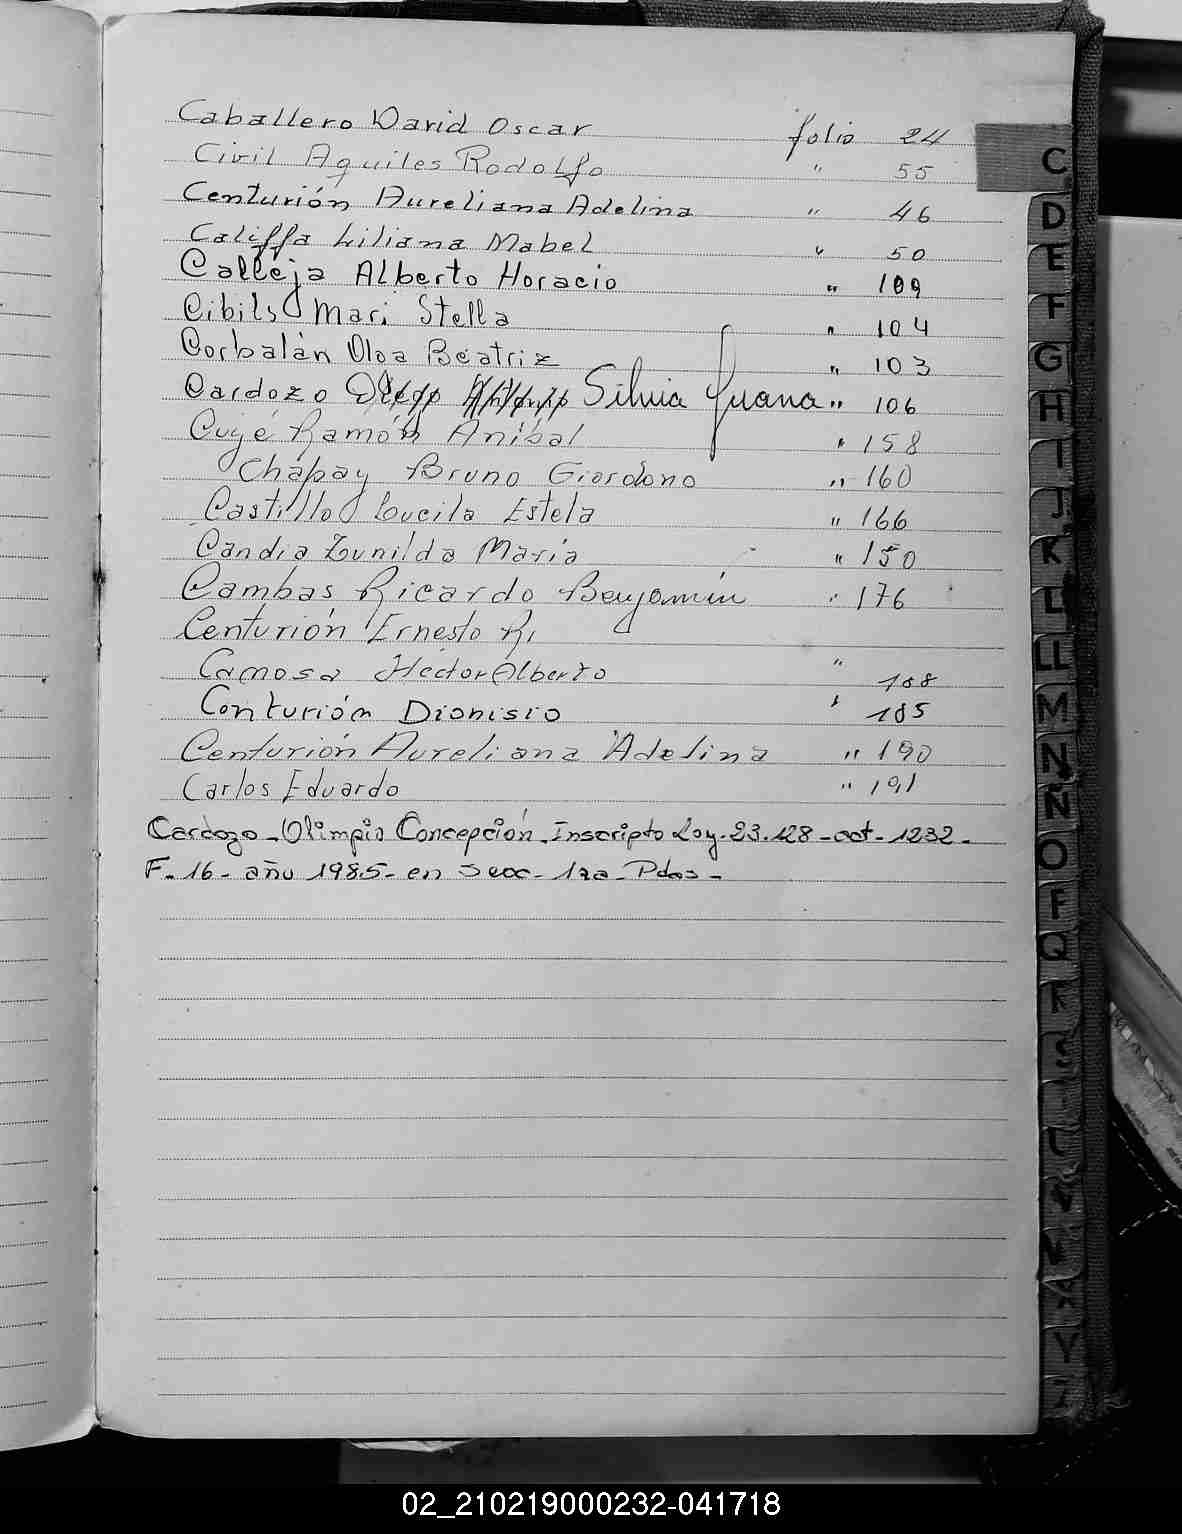 Caballero David Oscar folio 24
Civil Aquiles Rodolfo " 55
Centurión Aureliana Adelina " 46
Califfa Liliana Mabel " 50
Calleja Alberto Horacio " 109
Cibils Mari Stella " 104
Corbalán Olga Beatriz " 103
Cardozo Silvia Juana " 106
Cuyé Ramón Aníbal " 158
Chapay Bruno Giordano " 160
Castillo Lucila Estela " 166
Candia Zunilda María " 150
Cambas Ricardo Benjamín " 176
Centurión Ernesto R.
Camosa Héctor Alberto " 188
Centurión Dionisio " 185
Centurión Aureliana Adelina " 190
Carlos Eduardo " 191
Cardozo - Olimpia Concepción - Inscripto Ley - 23.128 - act - 1232 -
F - 16 - año 1985 - en Secc - 1ra - Pdas -
C
D
E
F
G
H
I
J
K
L
LL
M
N
Ñ
O
Q
V
02_210219000232-041718